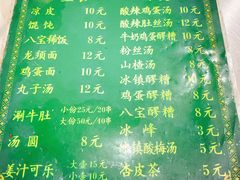 凉皮 10元
馄饨 10元
八宝稀饭 8元
龙须面 12元
鸡蛋面 10元
丸子汤 12元
涮牛肚 小份25元/20串
大份50元/40串
汤圆 8元
姜汁可乐 大壶15元
小壶10元
酸辣鸡蛋汤 10元
酸辣肚丝汤 12元
牛奶鸡蛋醪糟 10元
粉丝汤 8元
山楂汤 8元
冰镇醪糟 8元
鸡蛋醪糟 8元
八宝醪糟 8元
冰峰 3元
冰镇酸梅汤 5元
杏皮茶 5元